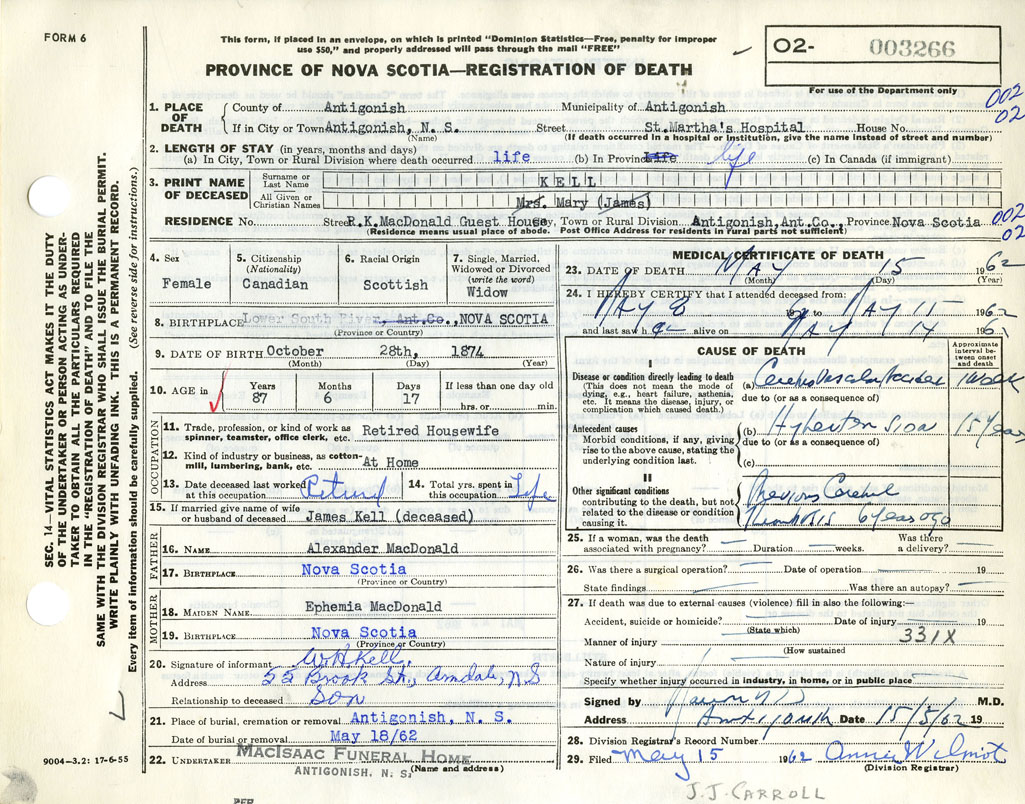 FORM 6
This form, if placed in an envelope, on which is printed "Dominion Statistics—Free, penalty for improper
use $50," and properly addressed will pass through the mail "FREE"
PROVINCE OF NOVA SCOTIA—REGISTRATION OF DEATH
O2- 003266
For use of the Department only
002
02
1. PLACE OF DEATH
County of Antigonish Municipality of Antigonish
If in City or Town Antigonish, N. S. Street St.Martha's Hospital House No.
(Name) (If death occurred in a hospital or institution, give the name instead of street and number)
2. LENGTH OF STAY (in years, months and days)
(a) In City, Town or Rural Division where death occurred life (b) In Province life (c) In Canada (if immigrant)
3. PRINT NAME OF DECEASED
Surname or Last Name KELL
All Given or Christian Names Mrs. Mary (James)
RESIDENCE No. Street R.K.MacDonald Guest House y, Town or Rural Division Antigonish,Ant.Co., Province Nova Scotia
(Residence means usual place of abode. Post Office Address for residents in rural parts not sufficient)
002
02
4. Sex
Female
5. Citizenship
(Nationality)
Canadian
6. Racial Origin
Scottish
7. Single, Married, Widowed or Divorced
(write the word)
Widow
8. BIRTHPLACE Lower South River, Ant.Co., NOVA SCOTIA
(Province or Country)
9. DATE OF BIRTH October 28th, 1874
(Month) (Day) (Year)
10. AGE in
Years Months Days If less than one day old
87 6 17 hrs. or min.
OCCUPATION
11. Trade, profession, or kind of work as
spinner, teamster, office clerk, etc. Retired Housewife
12. Kind of industry or business, as cotton-
mill, lumbering, bank, etc. At Home
13. Date deceased last worked
at this occupation Retired
14. Total yrs. spent in
this occupation Life
15. If married give name of wife
or husband of deceased James Kell (deceased)
FATHER
16. NAME Alexander MacDonald
17. BIRTHPLACE Nova Scotia
(Province or Country)
MOTHER
18. MAIDEN NAME Ephemia MacDonald
19. BIRTHPLACE Nova Scotia
(Province or Country)
20. Signature of informant W.H. Kell.
Address 55 Brook St., Armdale, N S
Relationship to deceased Son
21. Place of burial, cremation or removal Antigonish, N. S.
Date of burial or removal May 18/62
22. UNDERTAKER MACISAAC FUNERAL HOME
ANTIGONISH, N. S. (Name and address)
MEDICAL CERTIFICATE OF DEATH
23. DATE OF DEATH MAY 15 1962
(Month) (Day) (Year)
24. I HEREBY CERTIFY that I attended deceased from:
MAY 8 19 to MAY 15 1962
and last saw her alive on MAY 14 1962
CAUSE OF DEATH
Approximate interval between onset and death
I
Disease or condition directly leading to death
(This does not mean the mode of
dying, e.g., heart failure, asthenia,
etc. It means the disease, injury, or
complication which caused death.)
(a) Cerebro Vascular Accident 1 week
due to (or as a consequence of)
Antecedent causes
Morbid conditions, if any, giving
rise to the above cause, stating the
underlying condition last.
(b) Hypertension 15 years
due to (or as a consequence of)
(c)
II
Other significant conditions
contributing to the death, but not
related to the disease or condition
causing it.
Previous Cerebral
Thrombosis 6 years ago
25. If a woman, was the death
associated with pregnancy? — Duration — weeks. Was there
a delivery? —
26. Was there a surgical operation? — Date of operation — 19
State findings — Was there an autopsy? —
27. If death was due to external causes (violence) fill in also the following:—
Accident, suicide or homicide? — Date of injury — 19
(State which)
Manner of injury — 331X
(How sustained
Nature of injury —
Specify whether injury occurred in industry, in home, or in public place —
Signed by M.D.
Address Antigonish Date 15/5/62 19
28. Division Registrar's Record Number
29. Filed May 15 1962 Annie Wilmot
(Division Registrar)
J.J. CARROLL
SEC. 14—VITAL STATISTICS ACT MAKES IT THE DUTY
OF THE UNDERTAKER OR PERSON ACTING AS UNDER-
TAKER TO OBTAIN ALL THE PARTICULARS REQUIRED
IN THE "REGISTRATION OF DEATH" AND TO FILE THE
SAME WITH THE DIVISION REGISTRAR WHO SHALL ISSUE THE BURIAL PERMIT.
WRITE PLAINLY WITH UNFADING INK. THIS IS A PERMANENT RECORD.
Every item of information should be carefully supplied. (See reverse side for instructions.)
9004-3.2: 17-6-55
PER